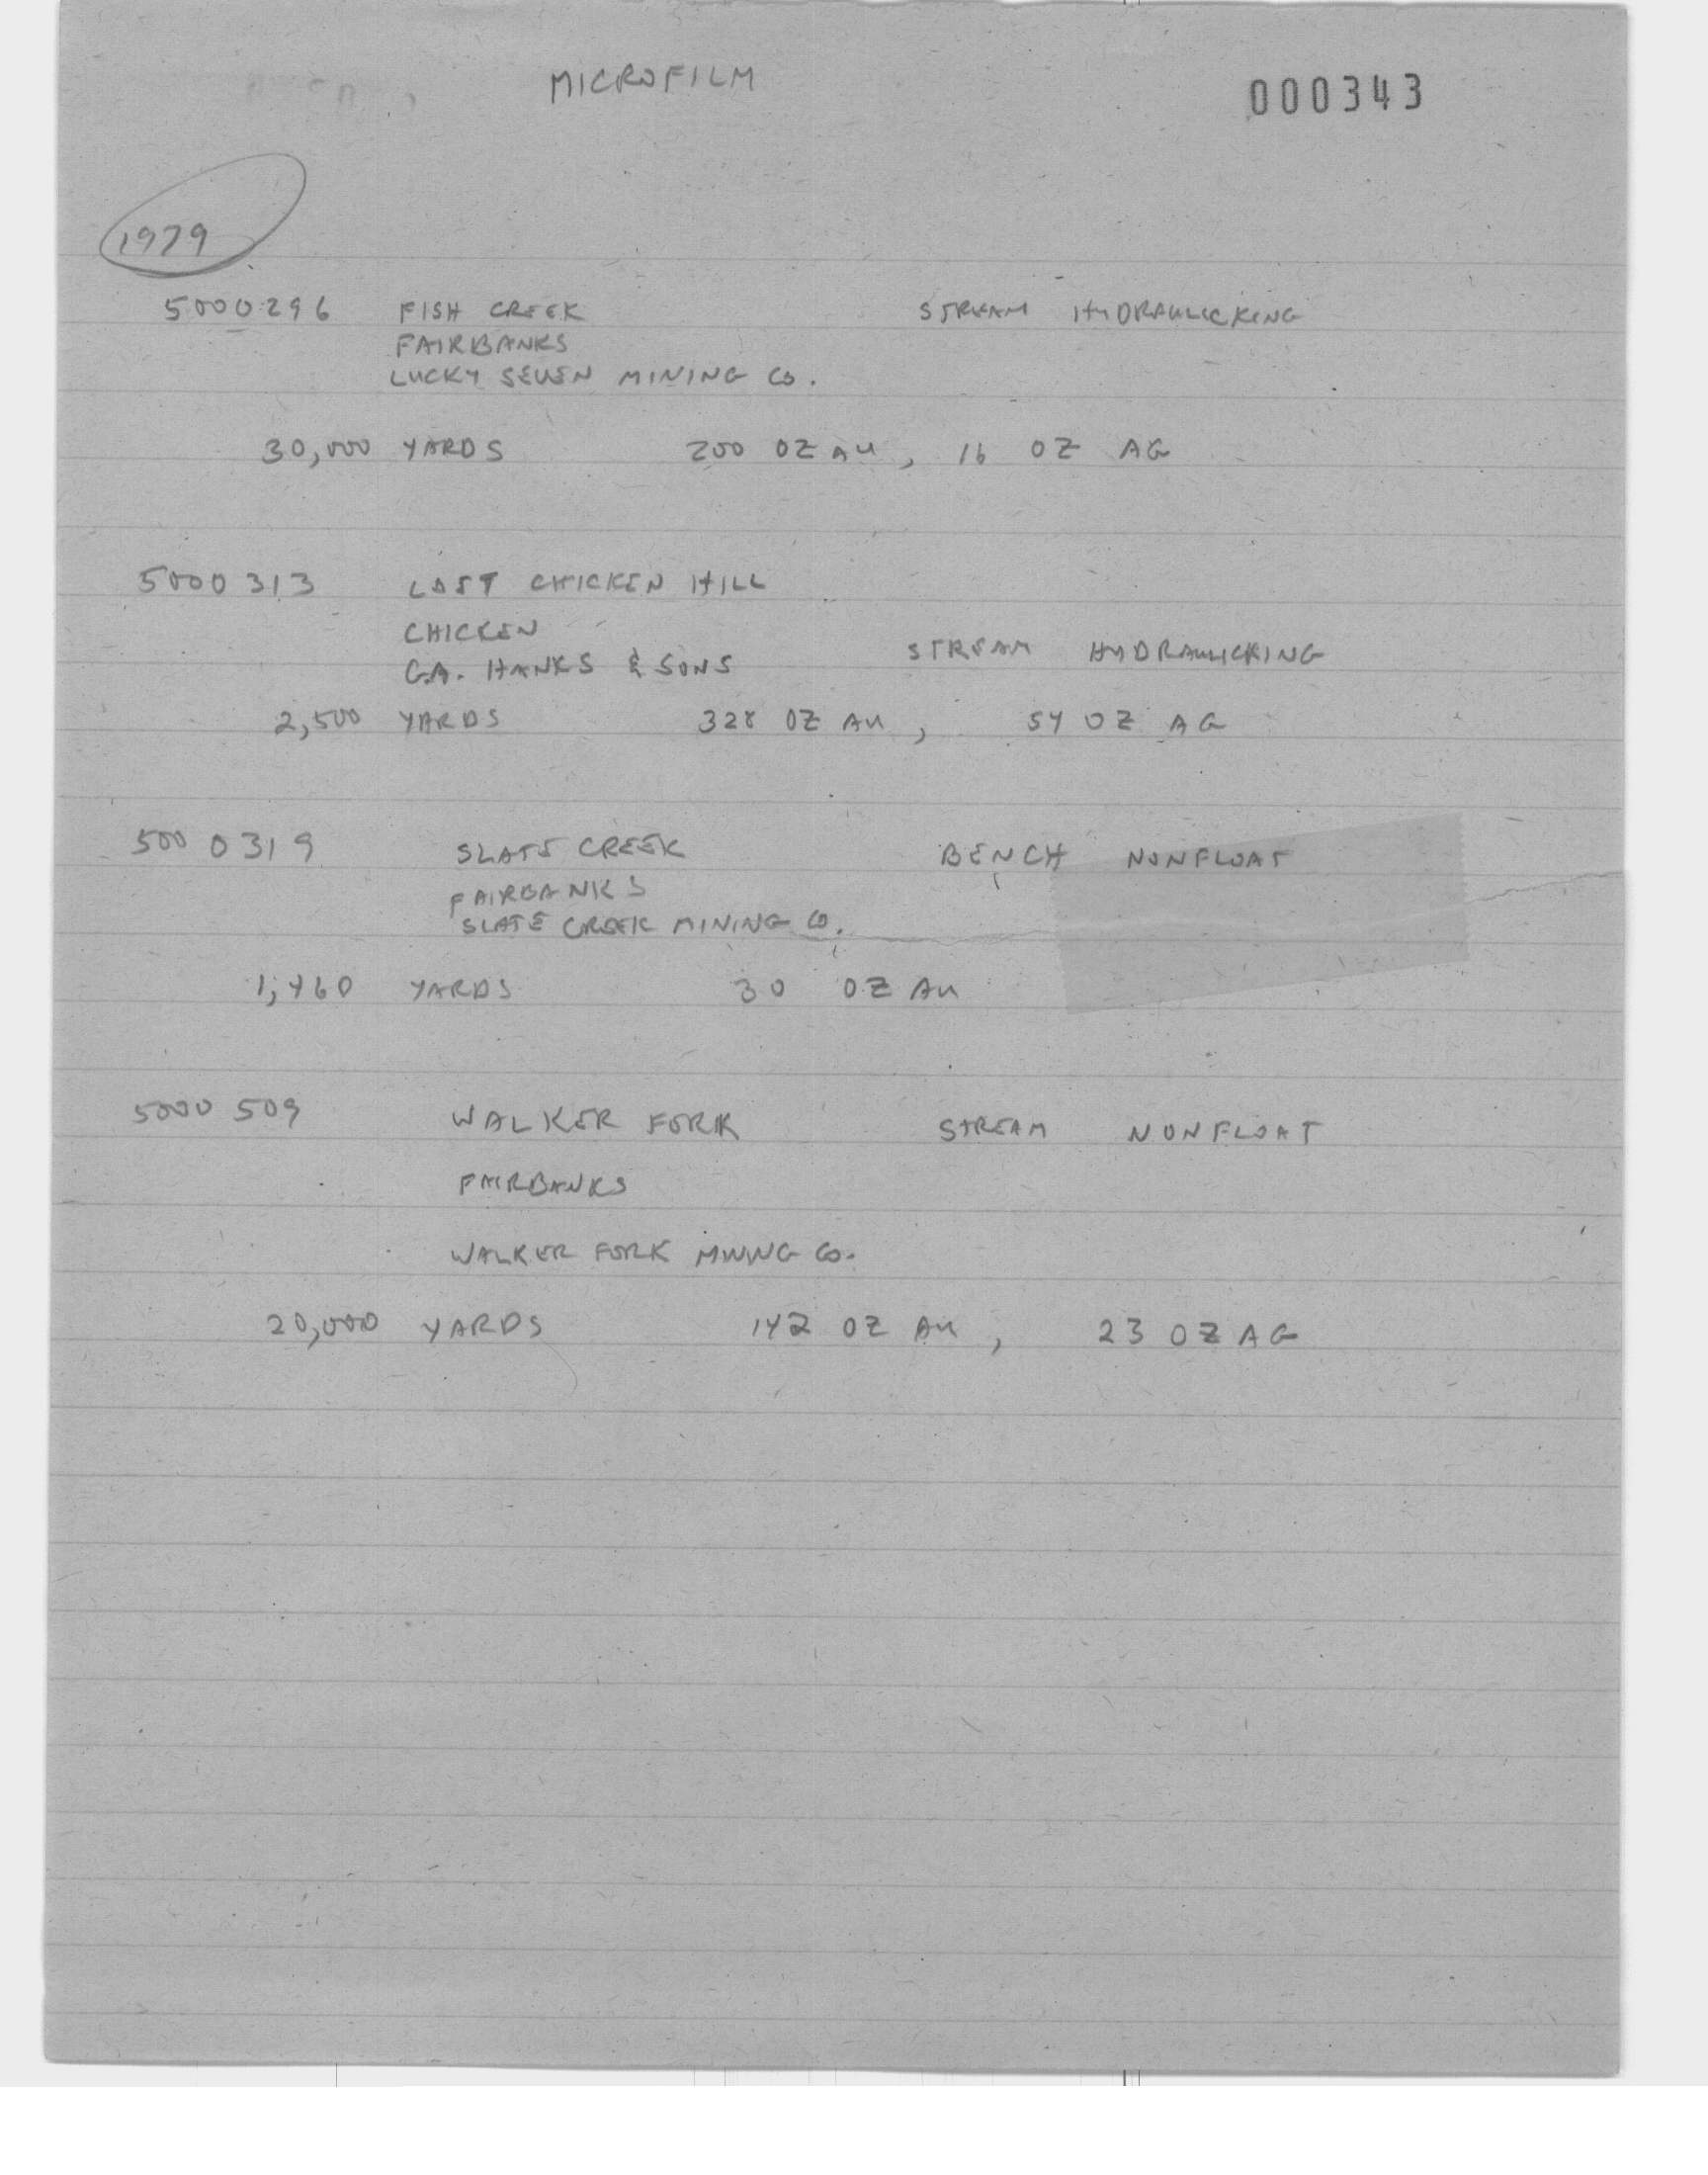 MICROFILM
000343
1979
5000296 FISH CREEK STREAM HYDRAULICKING
FAIRBANKS
LUCKY SEVEN MINING CO.
30,000 YARDS 200 OZ AU, 16 OZ AG
5000313 LOST CHICKEN HILL
CHICKEN
STREAM HYDRAULICKING
G.A. HANKS & SONS
2,500 YARDS 328 OZ AU, 54 OZ AG
5000319 SLATE CREEK BENCH NONFLOAT
FAIRBANKS
SLATE CREEK MINING CO.
1,460 YARDS 30 OZ AU
5000509 WALKER FORK STREAM NONFLOAT
FAIRBANKS
WALKER FORK MINING CO.
20,000 YARDS 142 OZ AU, 23 OZ AG